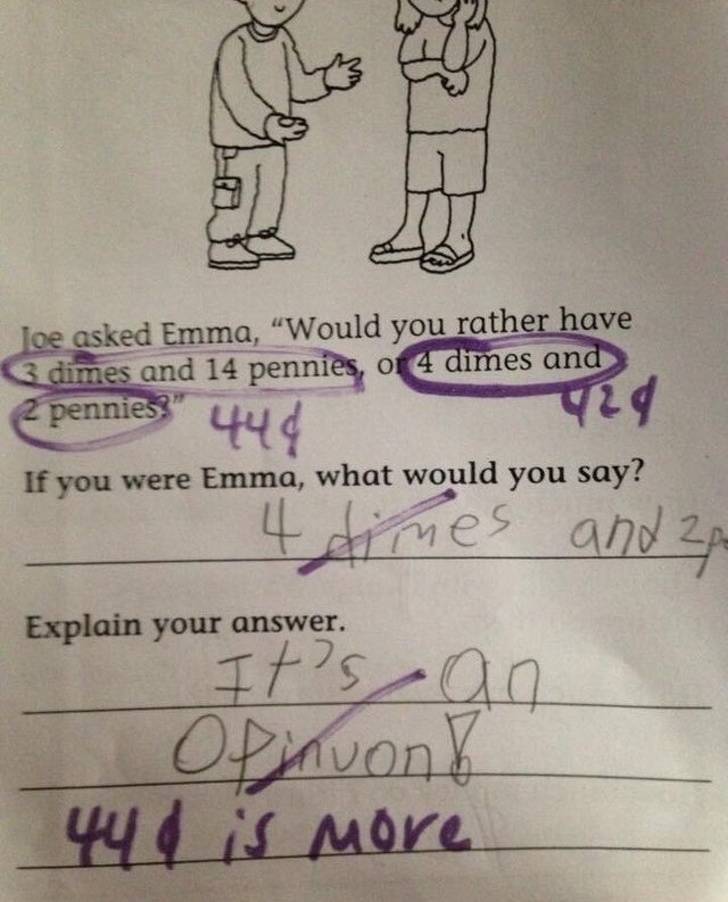 Joe asked Emma, “Would you rather have
3 dimes and 14 pennies, or 4 dimes and
2 pennies?” 44¢ 42¢
If you were Emma, what would you say?
4 dimes and 2
Explain your answer.
It's an
Opinvon!
44¢ is more